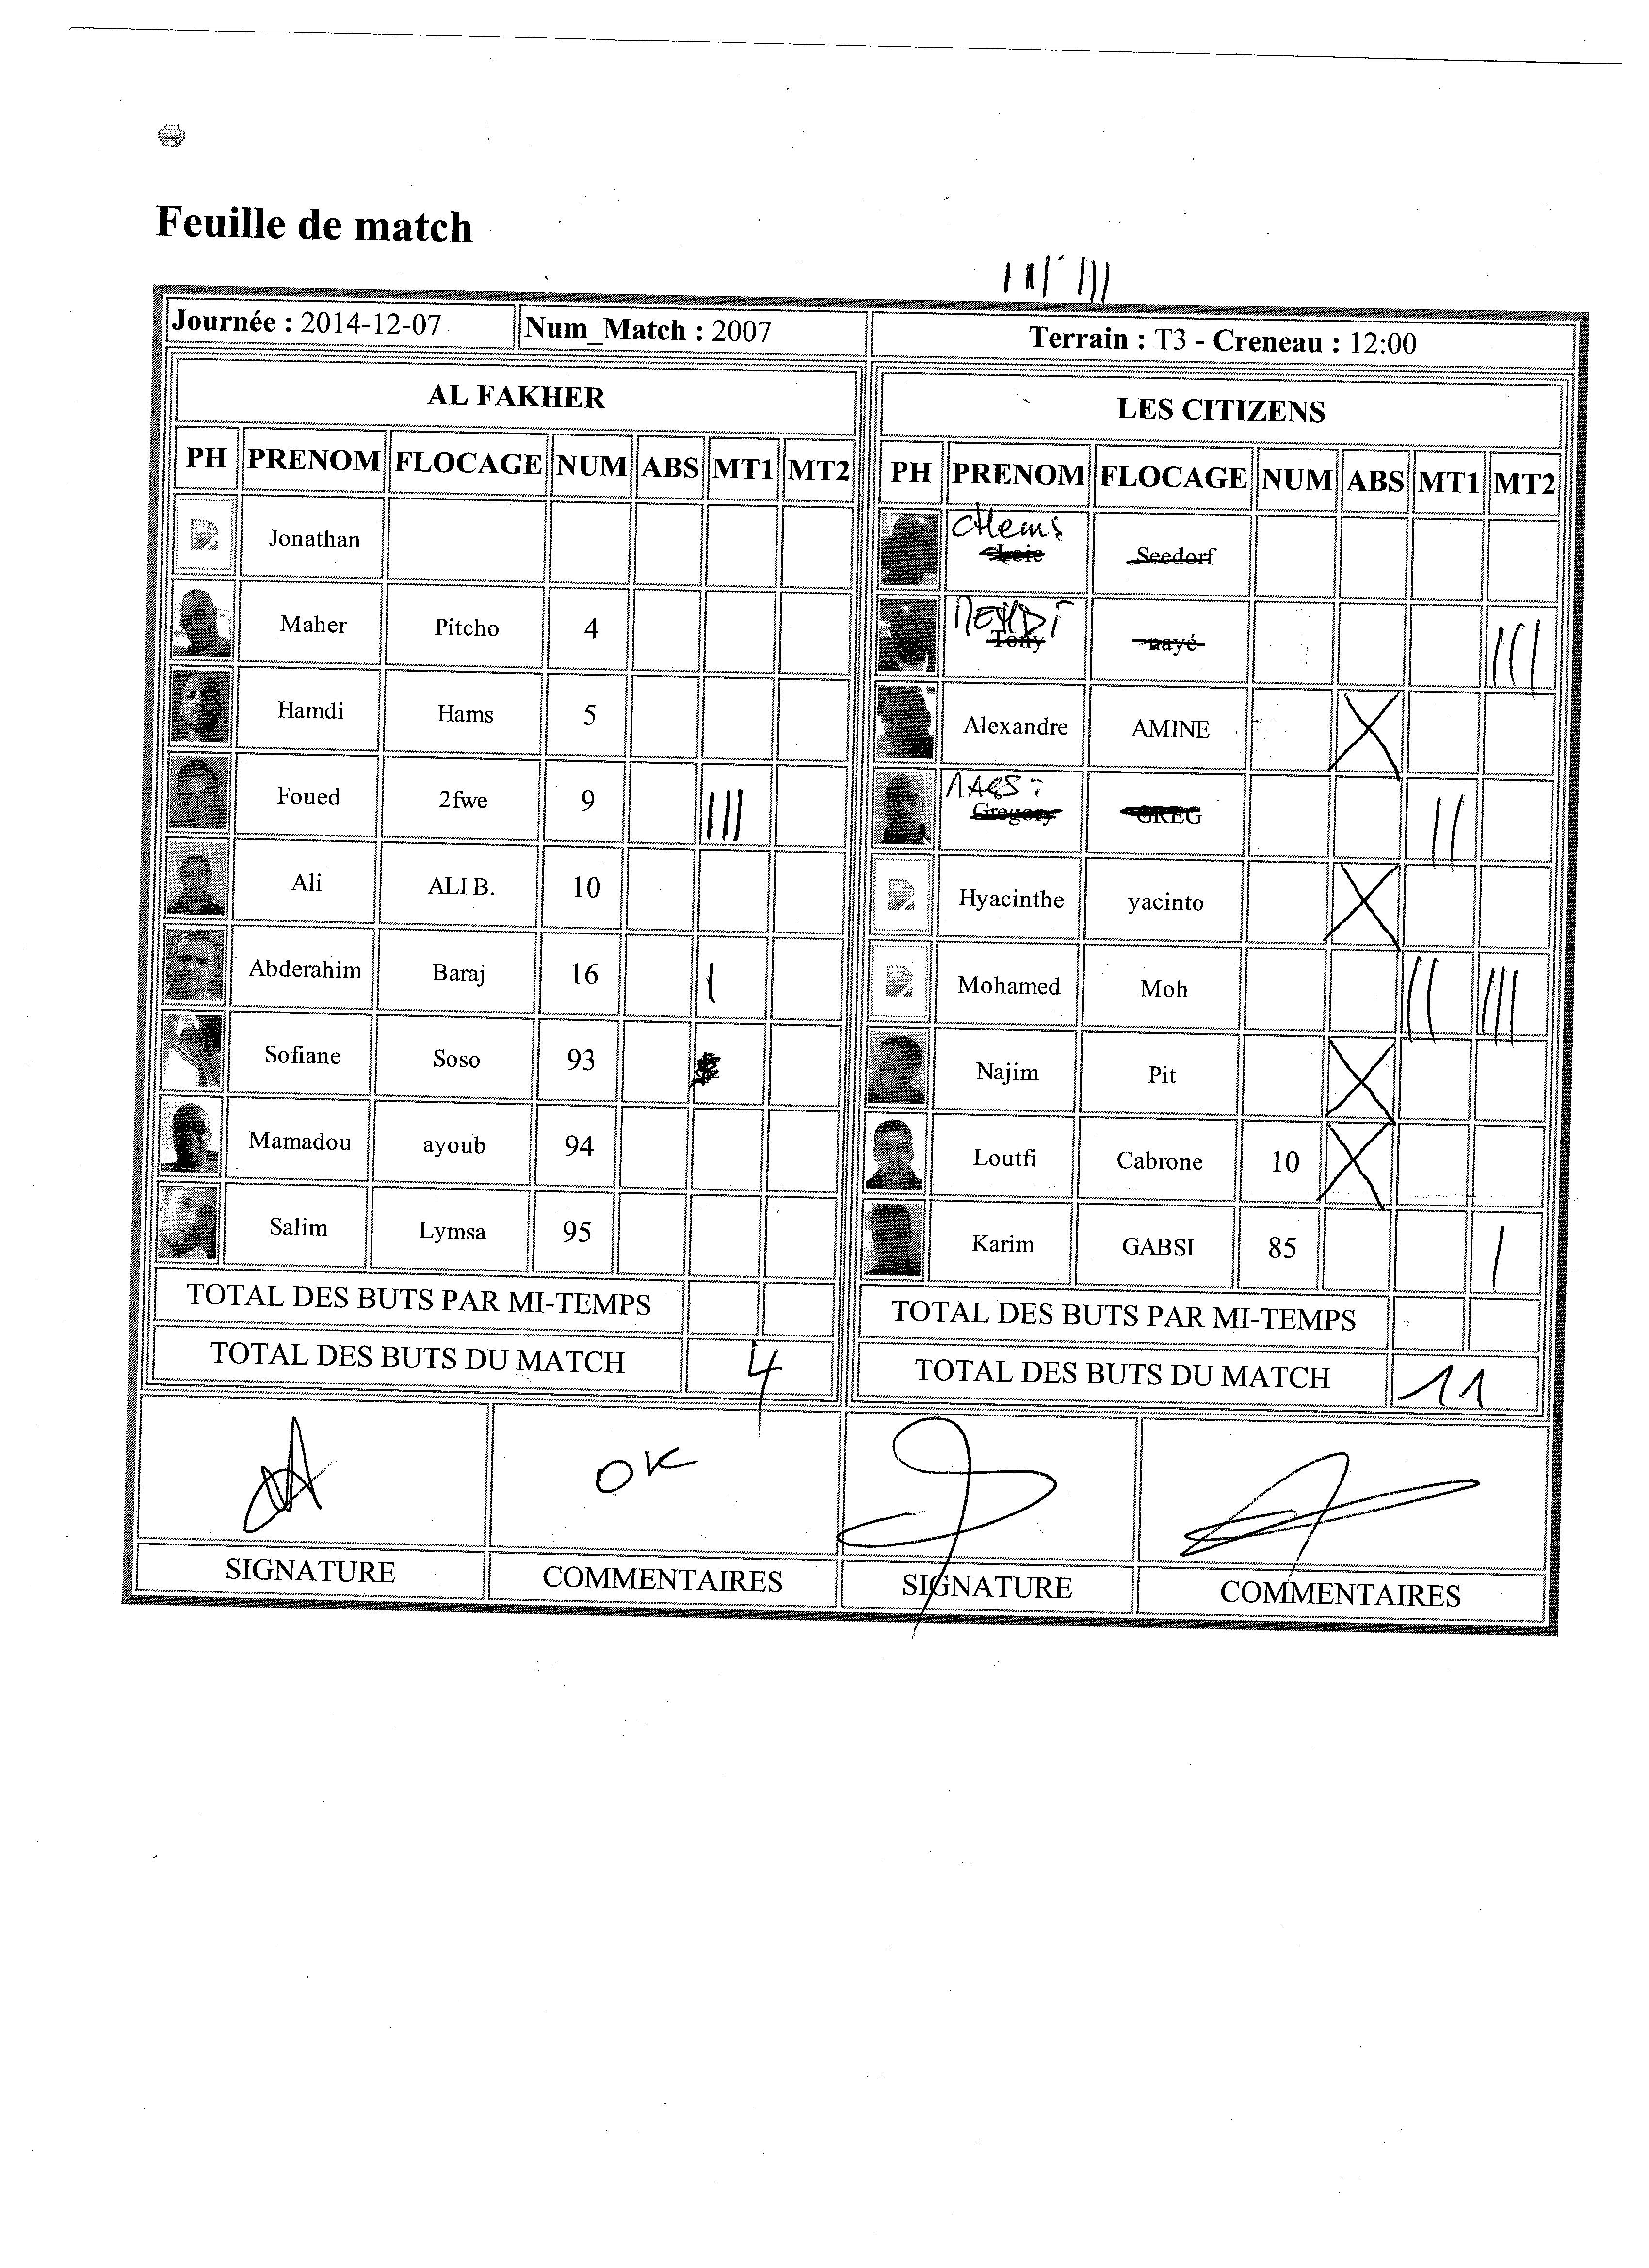 Feuille de match
Journée : 2014-12-07 Num_Match : 2007 Terrain : T3 - Creneau : 12:00
AL FAKHER
PH PRENOM FLOCAGE NUM ABS MT1 MT2
Jonathan
Maher Pitcho 4
Hamdi Hams 5
Foued 2fwe 9 |||
Ali ALI B. 10
Abderahim Baraj 16 |
Sofiane Soso 93
Mamadou ayoub 94
Salim Lymsa 95
TOTAL DES BUTS PAR MI-TEMPS
TOTAL DES BUTS DU MATCH 4
OK
SIGNATURE COMMENTAIRES
LES CITIZENS
PH PRENOM FLOCAGE NUM ABS MT1 MT2
CHems
Loic Seedorf
MEHDI
Tony nayé |||
Alexandre AMINE X
Gregory GREG ||
Hyacinthe yacinto X
Mohamed Moh || |||
Najim Pit X
Loutfi Cabrone 10 X
Karim GABSI 85 |
TOTAL DES BUTS PAR MI-TEMPS
TOTAL DES BUTS DU MATCH 11
SIGNATURE COMMENTAIRES